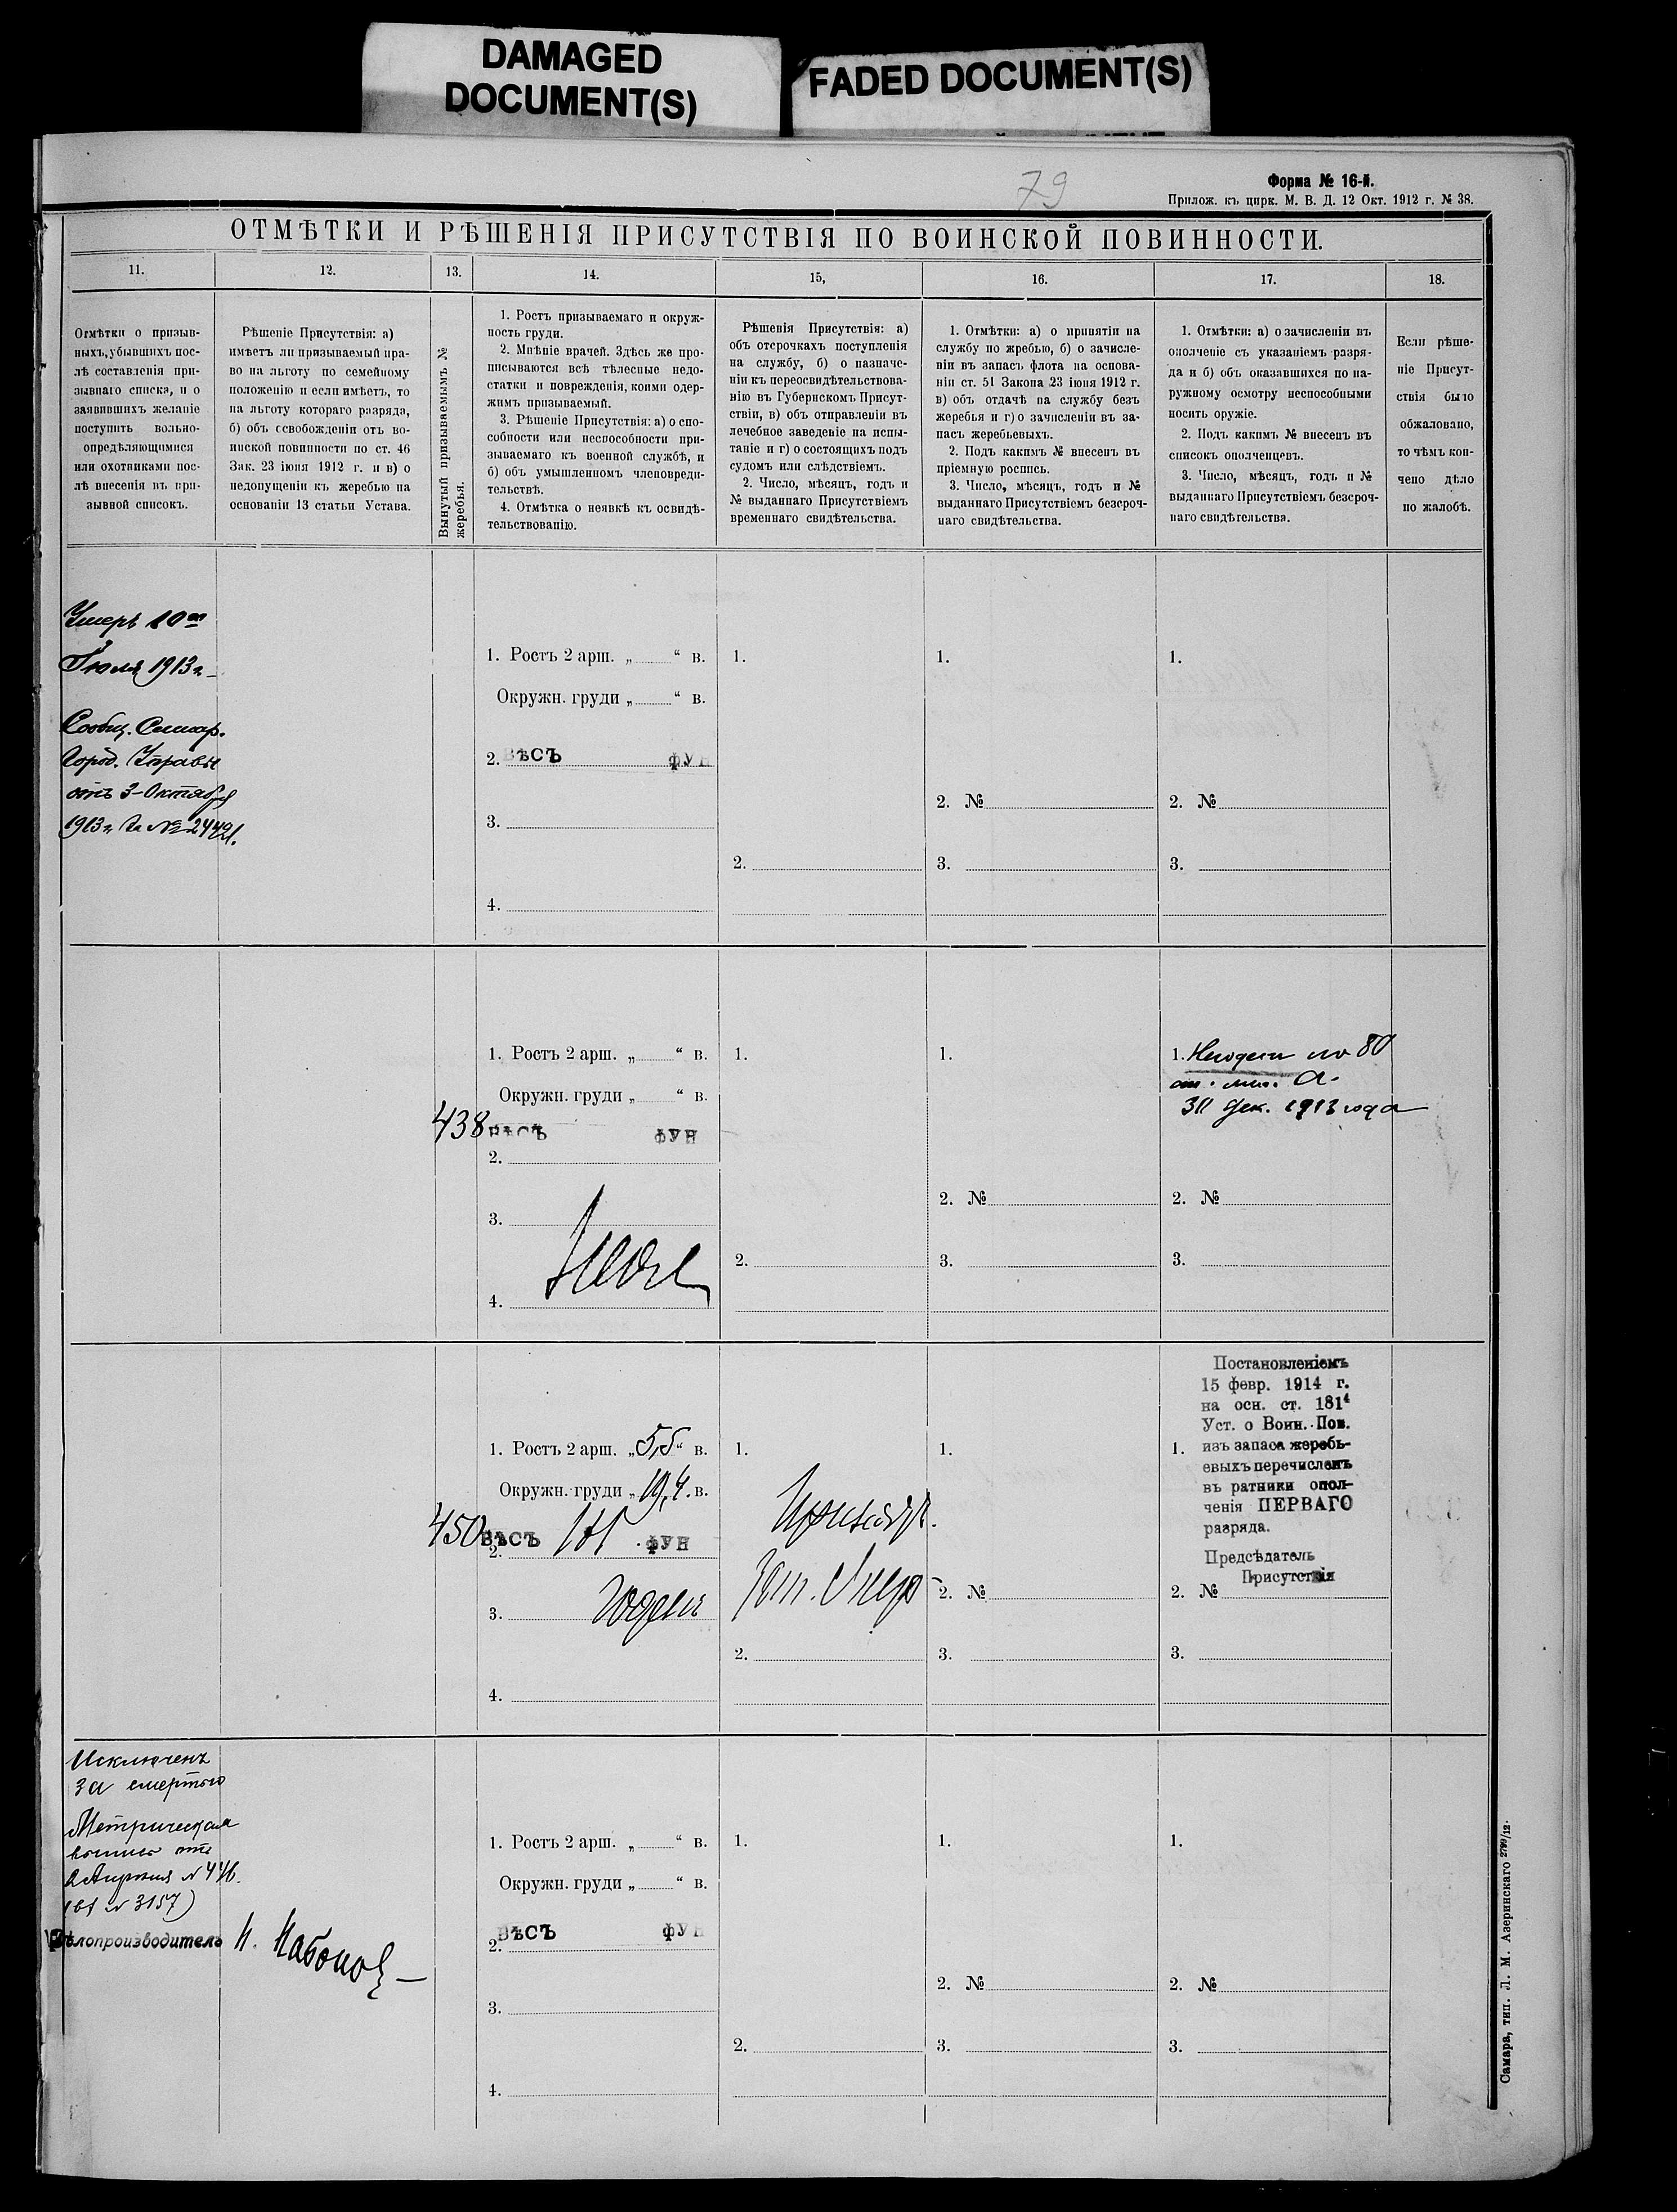 DAMAGED
DOCUMENT(S)
FADED DOCUMENT(S)
79
Форма № 16-й.
Прилож. къ цирк. М. В. Д. 12 Окт. 1912 г. № 38.
ОТМѢТКИ И РѢШЕНІЯ ПРИСУТСТВІЯ ПО ВОИНСКОЙ ПОВИННОСТИ.
11.
12.
13.
14.
15,
16.
17.
18.
Отмѣтки о призыв-
ныхъ, убывшихъ пос-
лѣ составленія при-
зывнаго списка, и о
заявившихъ желаніе
поступить вольно-
опредѣляющимися
или охотниками пос-
лѣ внесенія въ при-
зывной списокъ.
Рѣшеніе Присутствія: а)
имѣетъ ли призываемый пра-
во на льготу по семейному
положенію и если имѣетъ, то
на льготу котораго разряда,
б) объ освобожденіи отъ во-
инской повинности по ст. 46
Зак. 23 іюня 1912 г. и в) о
недопущеніи къ жеребью на
основаніи 13 статьи Устава.
Вынутый призываемымъ №
жеребья.
1. Ростъ призываемаго и окруж-
ность груди.
2. Мнѣніе врачей. Здѣсь же про-
писываются всѣ тѣлесные недо-
статки и поврежденія, коими одер-
жимъ призываемый.
3. Рѣшеніе Присутствія: а) о спо-
собности или неспособности при-
зываемаго къ военной службѣ, и
б) объ умышленномъ членовреди-
тельствѣ.
4. Отмѣтка о неявкѣ къ освидѣ-
тельствованію.
Рѣшенія Присутствія: а)
объ отсрочкахъ поступленія
на службу, б) о назначе-
ніи къ переосвидѣтельствова-
нію въ Губернскомъ Присут-
ствіи, в) объ отправленіи въ
лечебное заведеніе на испы-
таніе и г) о состоящихъ подъ
судомъ или слѣдствіемъ.
2. Число, мѣсяцъ, годъ и
№ выданнаго Присутствіемъ
временнаго свидѣтельства.
1. Отмѣтки: а) о принятіи на
службу по жребью, б) о зачисле-
ніи въ запасъ флота на основа-
ніи ст. 51 Закона 23 іюня 1912 г.
в) объ отдачѣ на службу безъ
жеребья и г) о зачисленіи въ за-
пасъ жеребьевыхъ.
2. Подъ какимъ № внесенъ въ
пріемную роспись.
3. Число, мѣсяцъ, годъ и №
выданнаго Присутствіемъ безсроч-
наго свидѣтельства.
1. Отмѣтки: а) о зачисленіи въ
ополченіе съ указаніемъ разря-
да и б) объ оказавшихся по на-
ружному осмотру неспособными
носить оружіе.
2. Подъ какимъ № внесенъ въ
списокъ ополченцевъ.
3. Число, мѣсяцъ, годъ и №
выданнаго Присутствіемъ безсроч-
наго свидѣтельства.
Если рѣше-
ніе Присут-
ствія было
обжаловано,
то чѣмъ кон-
чено дѣло
по жалобѣ.
Умеръ 10го
Іюля 1913 г.
Сообщ. Самар.
Город. Управы
отъ 3-Октября
1913 г. За № 24421.
1. Ростъ 2 арш. „ “ в.
Окружн. груди „ “ в.
2. ВѢСЪ ФУН
3.
4.
1.
2.
1.
2. №
3.
1.
2. №
3.
438
1. Ростъ 2 арш. „ “ в.
Окружн. груди „ “ в.
ВѢСЪ ФУН
2.
3.
4.
1.
2.
1.
2. №
3.
1. по 80
А.
дек. 1913 года
2. №
3.
450
1. Ростъ 2 арш. „5,5“ в.
Окружн. груди „19,4. в.
2. ВѢСЪ ФУН
3. Годенъ
4.
1.
2.
1.
2. №
3.
Постановленіемъ
15 февр. 1914 г.
на осн. ст. 181⁴
Уст. о Воин. Пов.
1. изъ запаса жеребь-
евыхъ перечисленъ
въ ратники опол-
ченія ПЕРВАГО
разряда.
Предсѣдатель
Присутствія
2. №
3.
Исключенъ
за смертью
Метрическая
отъ
№ 446.
(вх № 3157)
Дѣлопроизводитель
1. Ростъ 2 арш. „ “ в.
Окружн. груди „ “ в.
2. ВѢСЪ ФУН
3.
4.
1.
2.
1.
2. №
3.
1.
2. №
3.
Самара, тип. Л. М. Азеринскаго 2799/12.